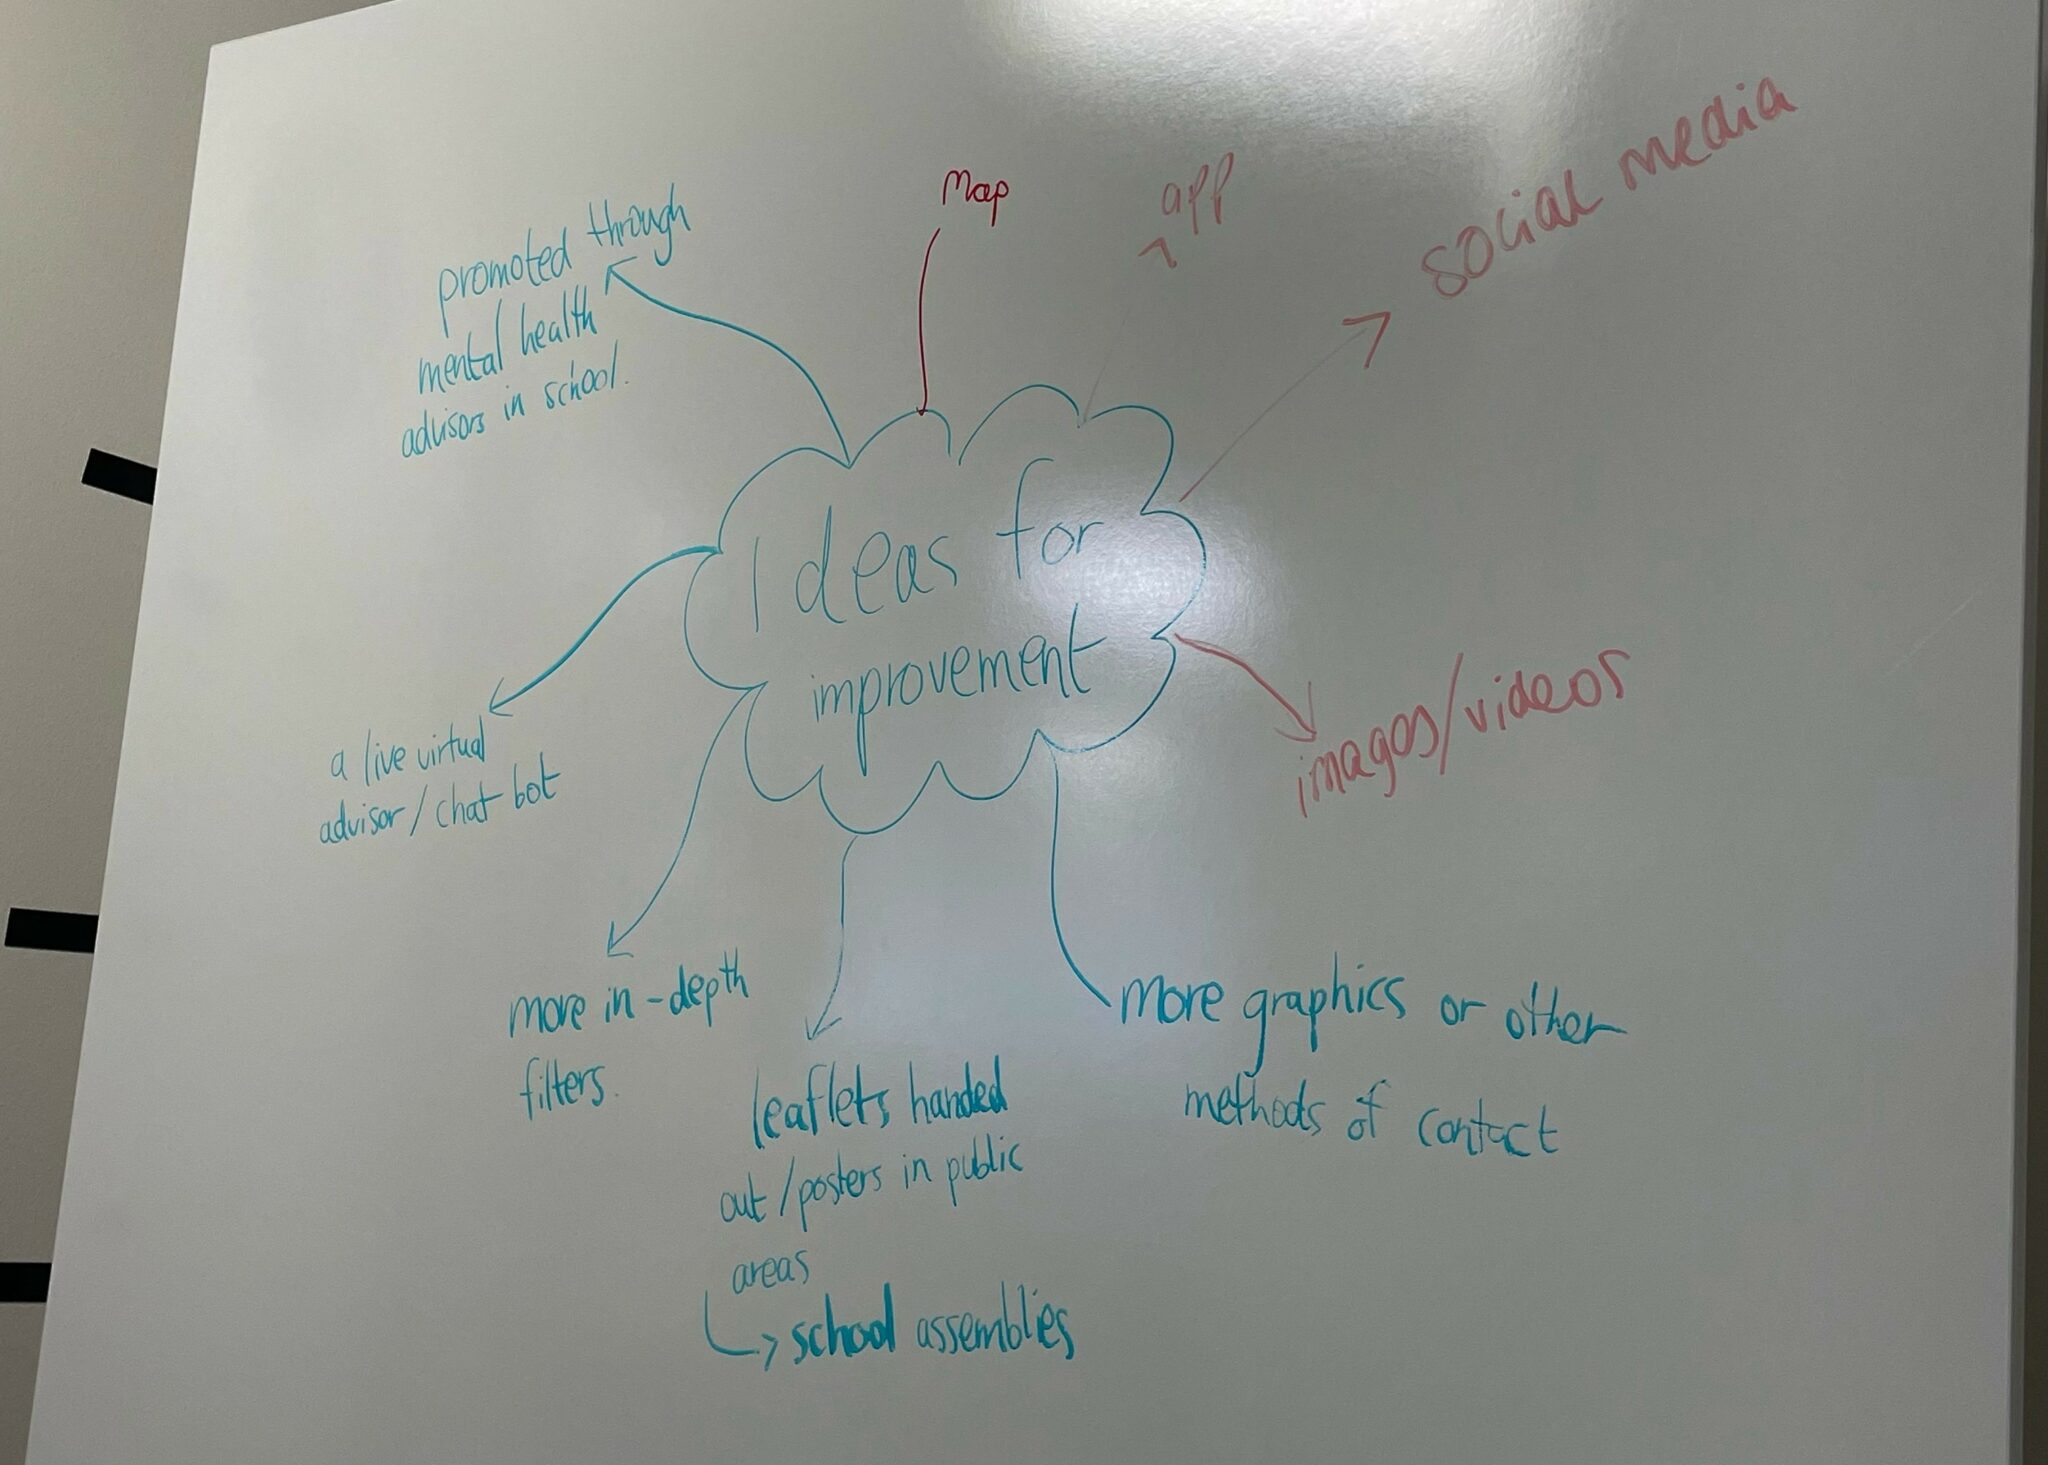 Ideas for
improvement
Map
app
social media
images/videos
more graphics or other
methods of contact
leaflets handed
out/posters in public
areas
school assemblies
more in-depth
filters.
a live virtual
advisor/chat bot
promoted through
mental health
advisors in school.